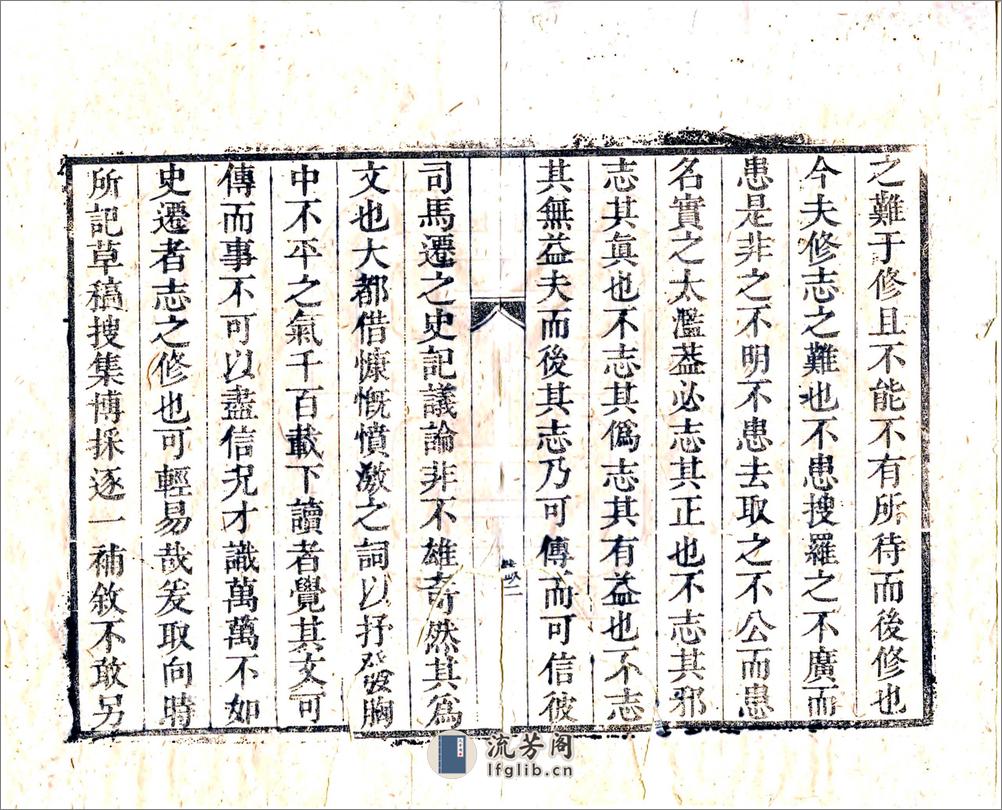 之難于修且不能不有所待而後修也
今夫修志之難也不患搜羅之不廣而
患是非之不明不患去取之不公而患
名實之太濫葢必志其正也不志其邪
志其眞也不志其僞志其有益也不志
其無益夫而後其志乃可傳而可信彼
司馬遷之史記議論非不雄奇然其爲
文也大都借慷慨憤激之詞以抒發胸
中不平之氣千百載下讀者覺其文可
傳而事不可以盡信況才識萬萬不如
史遷者志之修也可輕易哉爰取向時
所記草稿搜集博採逐一補敘不敢另
流芳阁
lfglib.cn